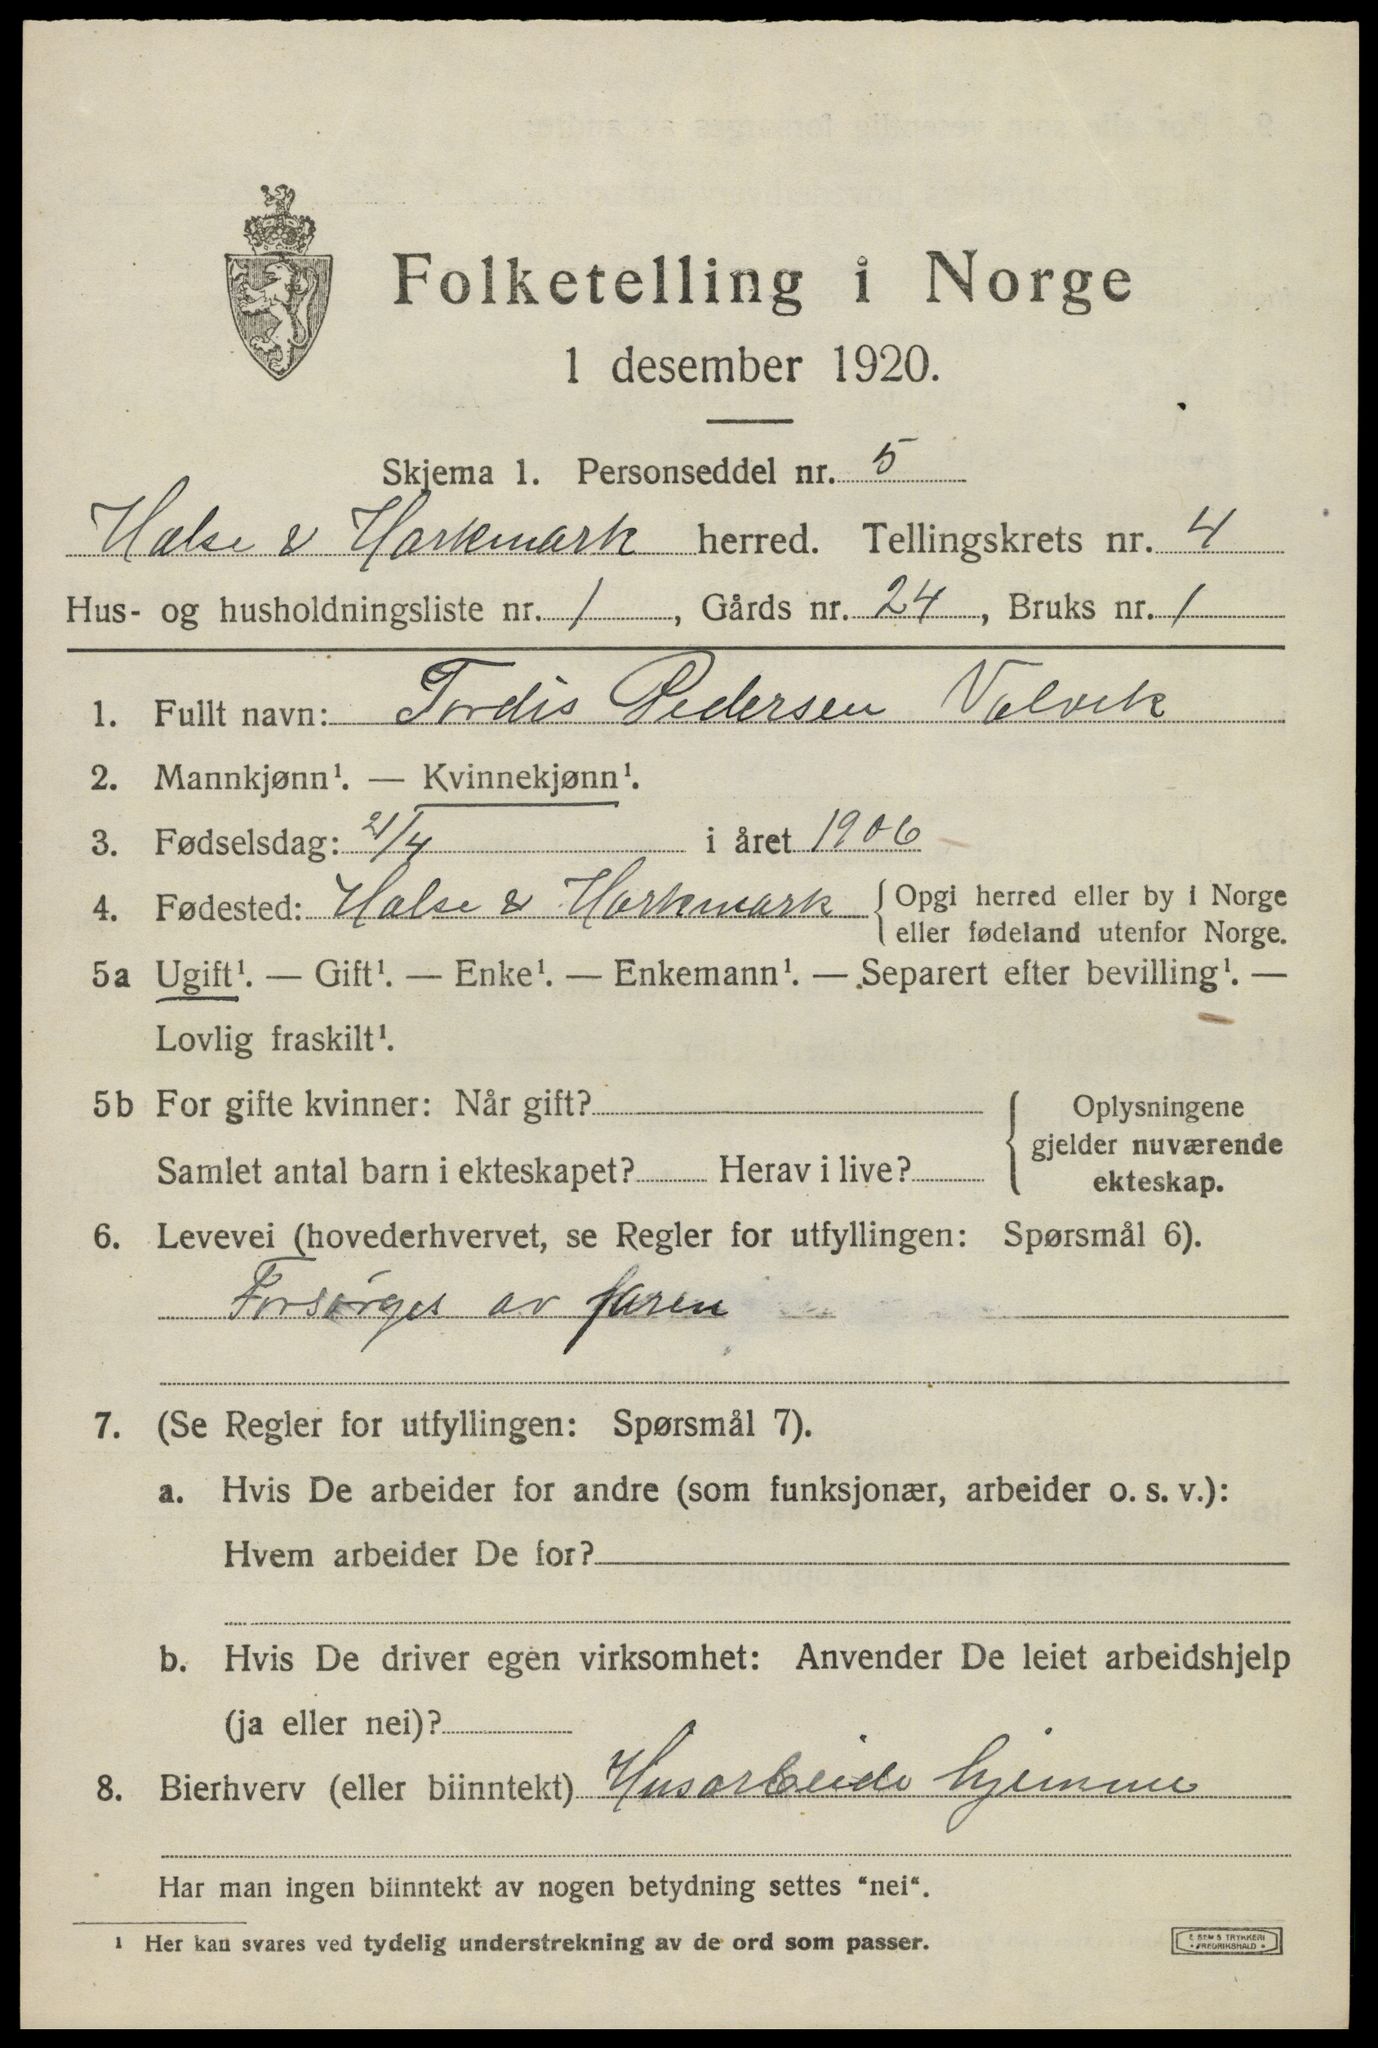 Folketelling i Norge
1 desember 1920.
Skjema 1. Personseddel nr. 5
Halse & Harkmark herred. Tellingskrets nr. 4
Hus- og husholdningsliste nr. 1, Gårds nr. 24, Bruks nr. 1
1. Fullt navn: Tordis Pedersen Valvik
2. Mannkjønn¹. — Kvinnekjønn¹.
3. Fødselsdag: 21/4 i året 1906
4. Fødested: Halse & Harkmark { Opgi herred eller by i Norge
eller fødeland utenfor Norge.
5a Ugift¹. — Gift¹. — Enke¹. — Enkemann¹. — Separert efter bevilling¹. —
Lovlig fraskilt¹.
5b For gifte kvinner: Når gift? { Oplysningene
gjelder nuværende
Samlet antal barn i ekteskapet? Herav i live? ekteskap.
6. Levevei (hovederhvervet, se Regler for utfyllingen: Spørsmål 6).
Forsørges av faren
7. (Se Regler for utfyllingen: Spørsmål 7).
a. Hvis De arbeider for andre (som funksjonær, arbeider o. s. v.):
Hvem arbeider De for?
b. Hvis De driver egen virksomhet: Anvender De leiet arbeidshjelp
(ja eller nei)?
8. Bierhverv (eller biinntekt) Husarbeide hjemme
Har man ingen biinntekt av nogen betydning settes "nei".
¹ Her kan svares ved tydelig understrekning av de ord som passer.
E. SEM'S TRYKKERI
• FREDRIKSHALD •